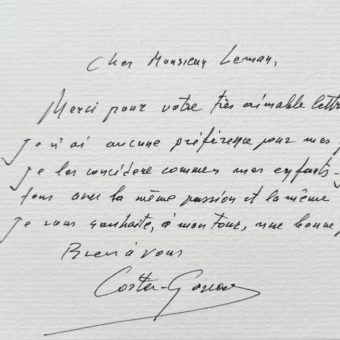 Cher Monsieur Leman,
Merci pour votre très aimable lettre
Je n'ai aucune préférence pour mes
Je les considère comme mes enfants
tous avec la même passion et la même
Je vous souhaite, à mon tour, une bonne
Bien à vous
Costa-Gavras